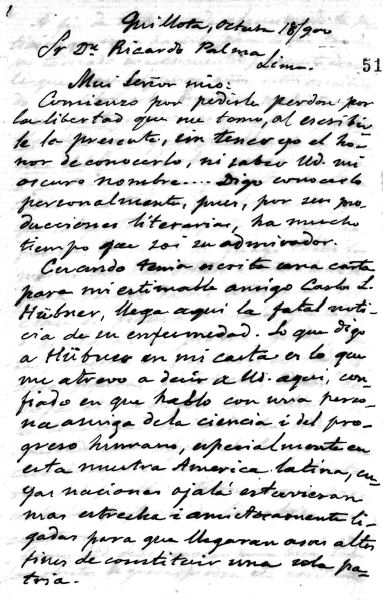 1
Quillota, octubre 18/900
Sr Dn Ricardo Palma
Lima.
51
Mui Señor mio:
Comienzo por pedirle perdon por
la libertad que me tomo, al escribir
le la presente, sin tener yo el ho-
nor de conocerlo, ni saber Ud. mi
oscuro nombre.... Digo conocerlo
personalmente, pues, por sus pro-
ducciones literarias, ha mucho
tiempo que soi su admirador.
Cuando tenia escrita una carta
para mi estimable amigo Carlos L.
Hübner, llega aquí la fatal noti-
cia de su enfermedad. Lo que digo
a Hübner en mi carta es lo que
me atrevo a decir a Ud. aqui, con-
fiado en que hablo con una perso-
na amiga de la ciencia i del pro-
greso humano, especialmente en
esta nuestra America latina, cu-
yas naciones ojalá estuvieran
mas estrecha i amistosamente li-
gadas para que llegaran a sus altos
fines de constituir una sola pa-
tria.